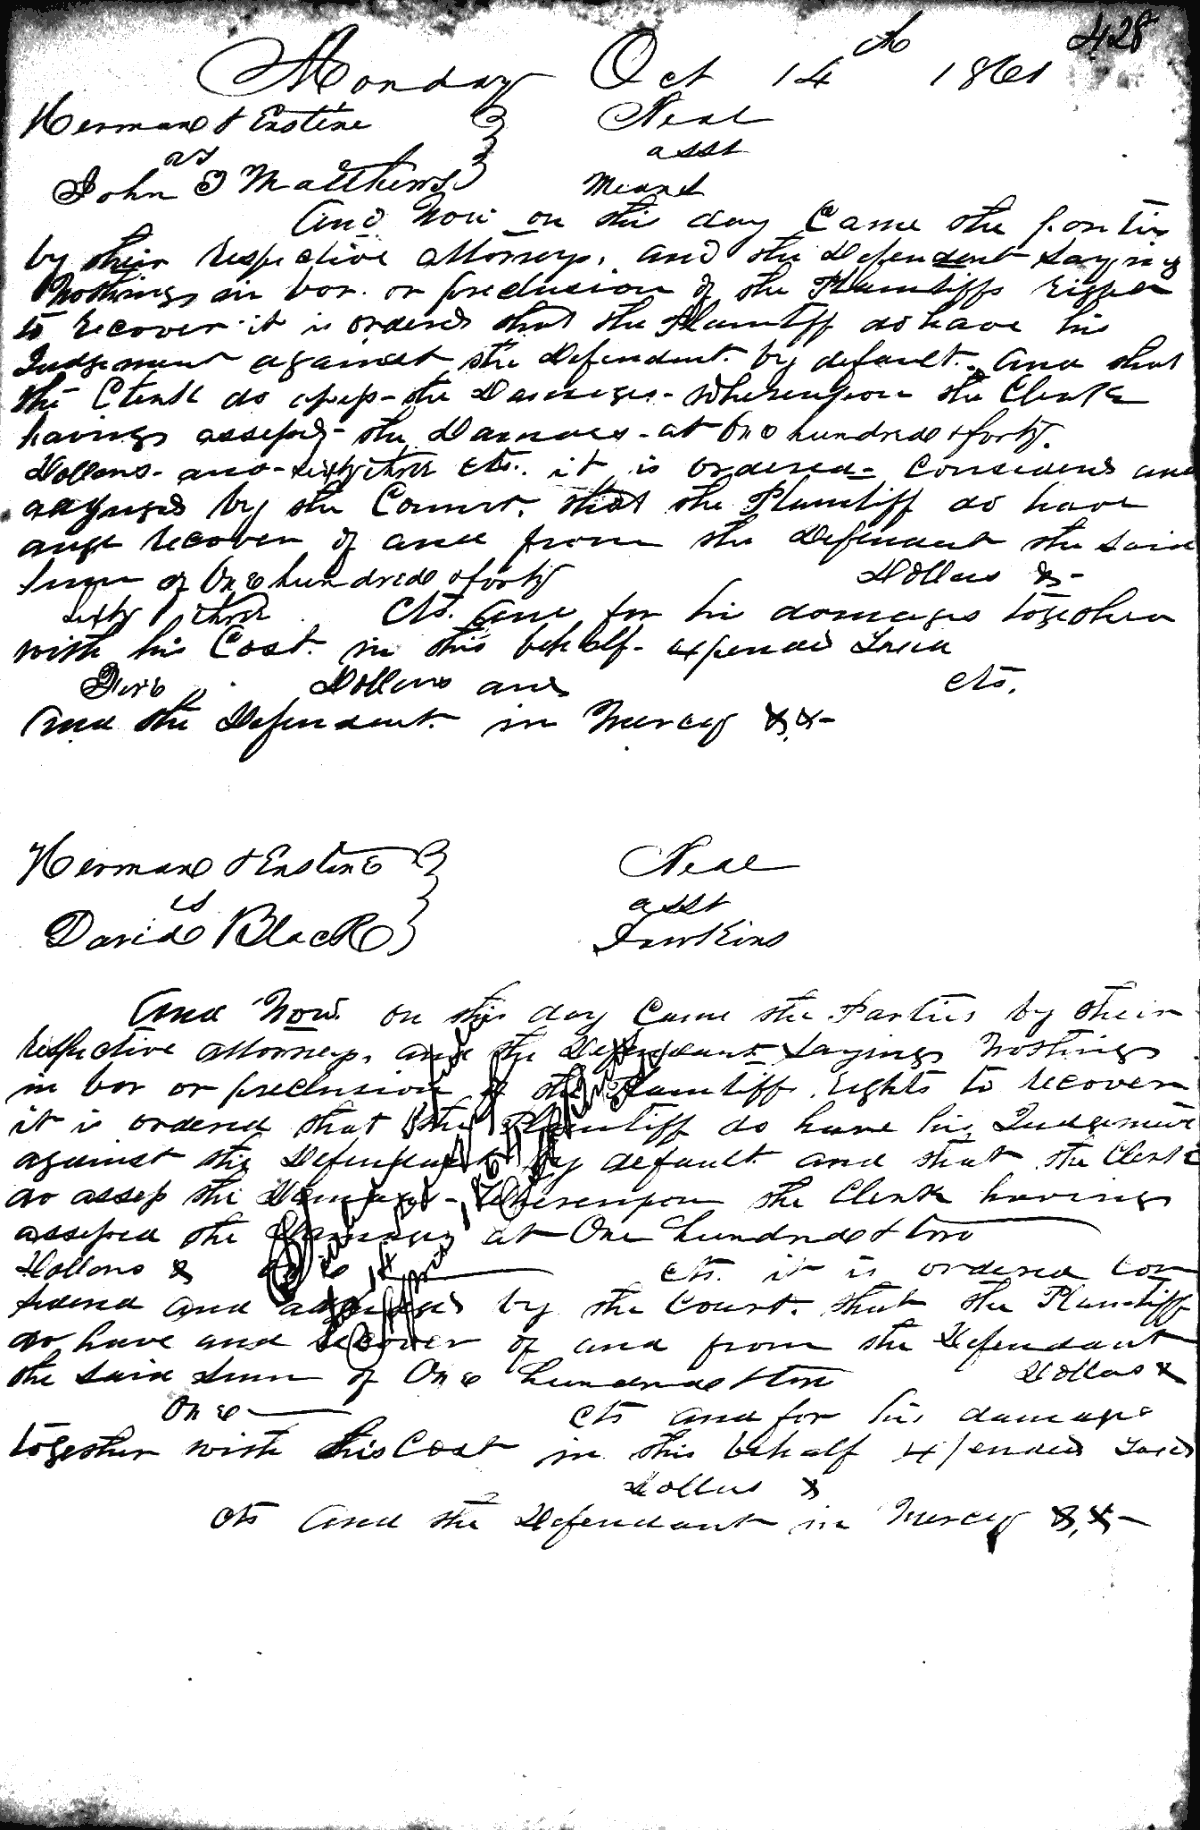 428
Monday Oct 14th 1861
Herman & Enstine Neal
vs asst
John T Matthews Means
And Now on this day Came the parties
by their respective attorneys. and the Defendent saying
Nothing in bar. or preclusion of the Plaintiffs right
to recover it is ordered that the Plaintiff do have his
Judgement against the Defendant by default. and that
the Clerk do assess the Damages - Whereupon the Clerk
having assessed - the Damages - at One hundred & forty
Dollars - and - sixty three cts. it is ordered - Considered and
adjuged by the Court. that the Plaintiff do have
and recover of and from the Defendant the said
Sum of One hundred & forty Dollars &-
sixty three Cts. and for his damages together
with his Cost. in this behalf - expended Taxed
Dollars and cts.
And the Defendant in Mercy &,&-
Herman & Enstine Neal
vs asst
David Black Hawkins
And Now on this day Came the Parties by their
respective attorneys, and the Defendant saying Nothing
in bar or preclusion of the Plaintiff rights to recover
it is ordered that the Plaintiff do have his Judgement
against this Defendant by default and that the Clerk
do assess the Damages - Whereupon the Clerk having
assessed the Damages at One hundred & two
Dollars & cts. it is ordered Con
sidered and adjudged by the Court. that the Plaintiff
do have and recover of and from the Defendant
the said Sum of One hundred & two Dollars &
One cts and for his damage
together with his Cost in this behalf expended Taxed
Dollars &
cts And the Defendant in Mercy &,&-